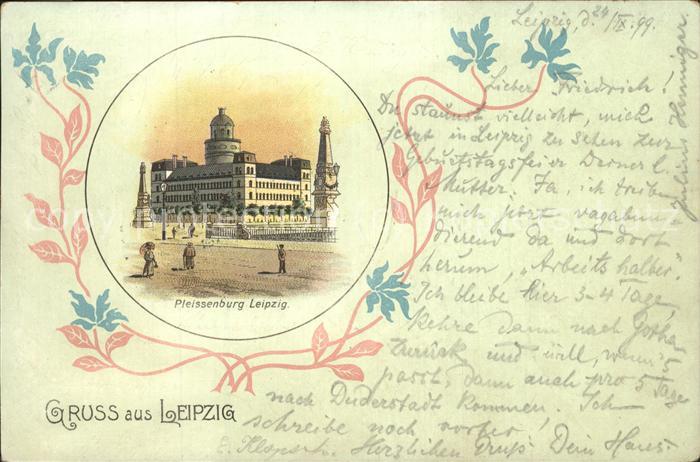 Leipzig, d. 24/IX. 99.
Lieber Friedrich!
Du staunst vielleicht, mich
jetzt in Leipzig zu sehen zur
Geburtstagsfeier Deiner l.
Mutter. Ja, ich treibe
mich jetzt vagabun-
dierend da und dort
herum, "Arbeits halber".
Ich bleibe hier 3-4 Tage
Kehre dann nach Gotha
zurück und will, wenn's
passt, dann auch pro 5 Tage
nach Duderstadt kommen. Ich
schreibe noch vorher!
Herzlichen Gruß Dein Hans.
Pleissenburg Leipzig.
GRUSS aus LEIPZIG